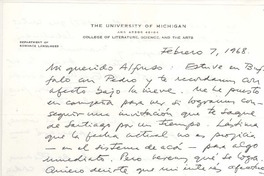 THE UNIVERSITY OF MICHIGAN
ANN ARBOR
COLLEGE OF LITERATURE, SCIENCE, AND THE ARTS
DEPARTMENT OF
ROMANCE LANGUAGES
Febrero 7, 1968.
Mi querido Alfonso: Estuve en Búf-
falo con Pedro y te recordamos con
afecto bajo la nieve. Me he puesto
en campaña para ver si logramos con-
seguir una invitación que te saque
de Santiago por un tiempo. Lástima
que la fecha actual no es propicia
— en el sistema de acá — para algo
inmediato. Pero veremos qué se logra.
Quiero decirte que mi interés